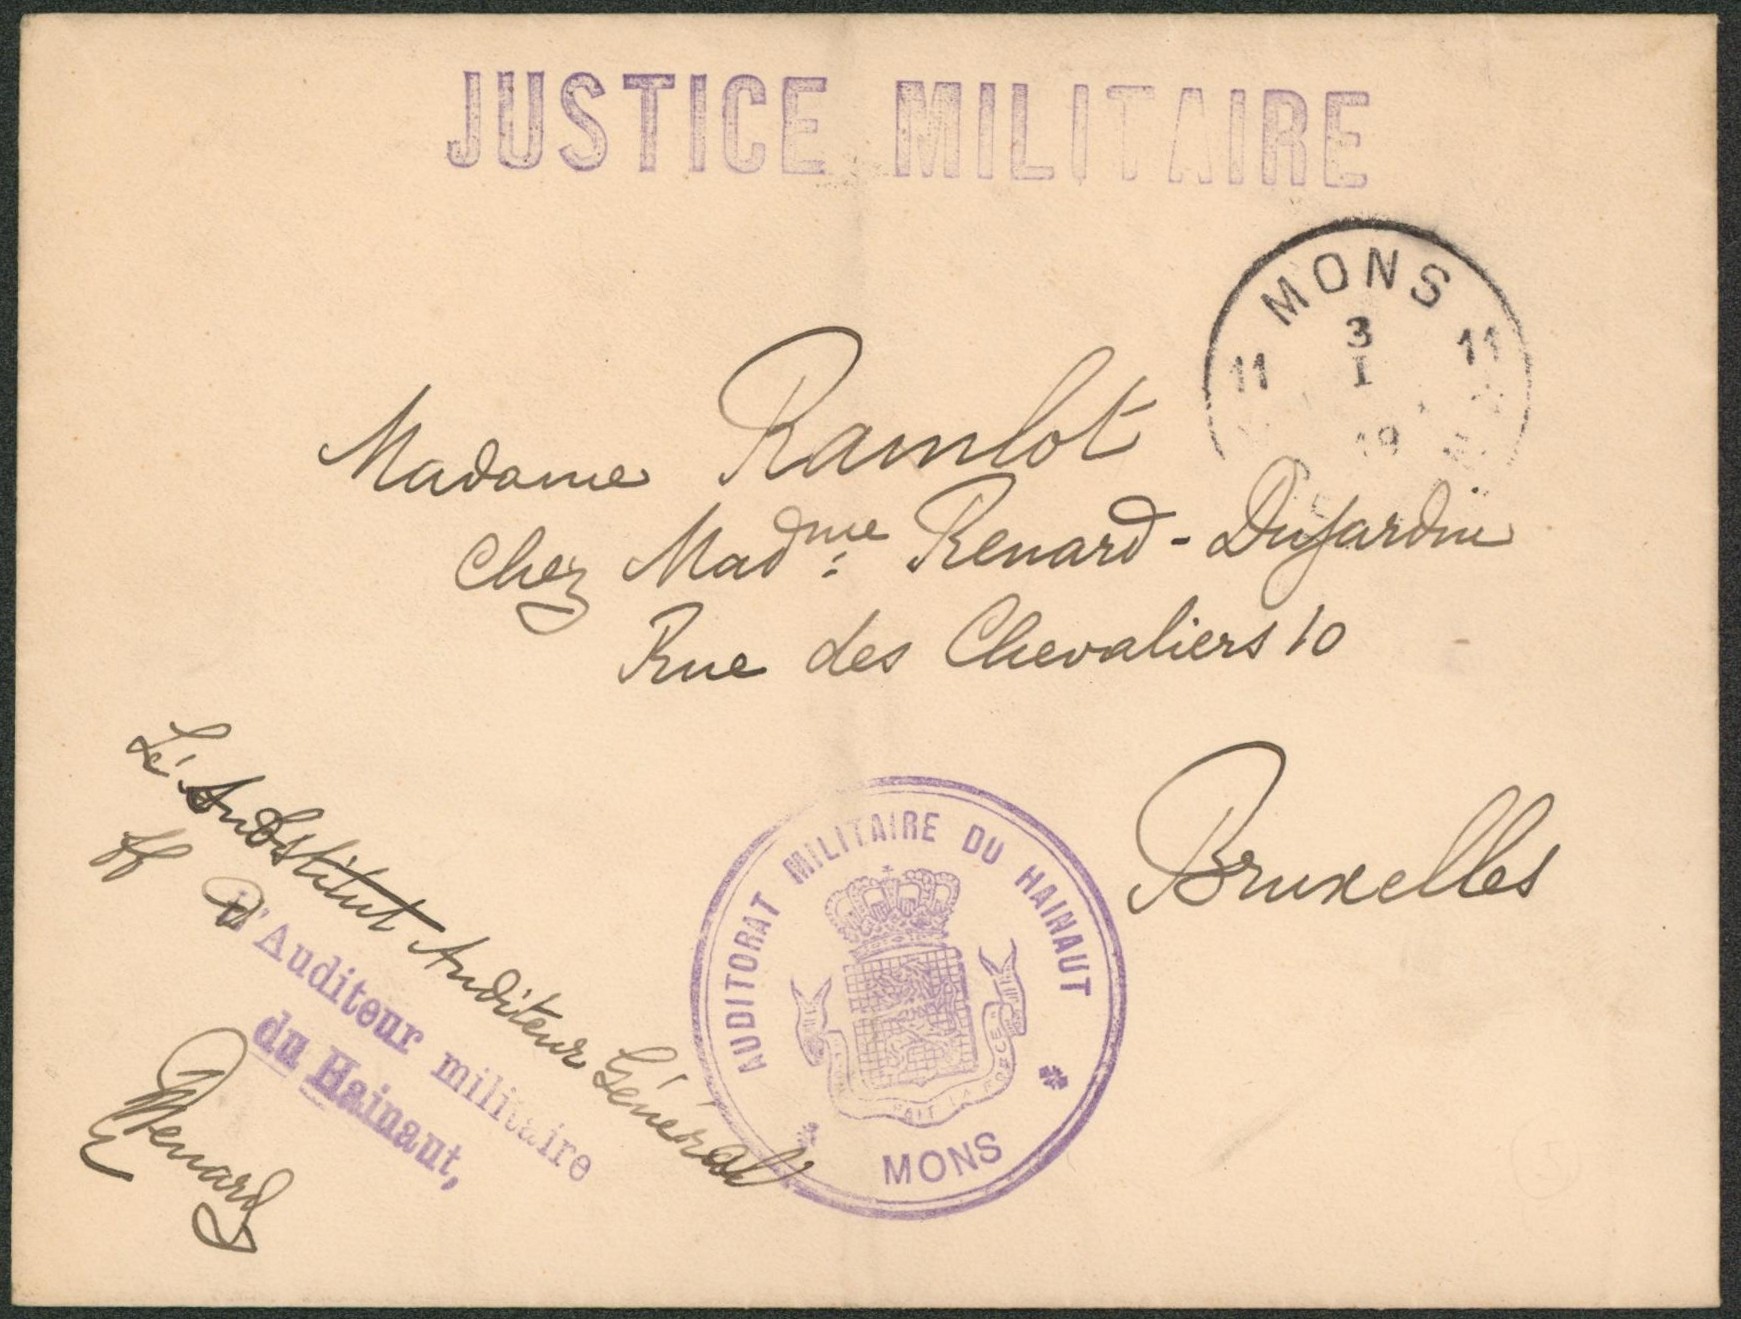 JUSTICE MILITAIRE
MONS
11 3 11
I
19
Madame Ramlot
Chez Madme Renard - Dujardin
Rue des Chevaliers 10
Bruxelles
Le Substitut Auditeur Général
ff
d'Auditeur militaire
du Hainaut,
Renard
AUDITORAT MILITAIRE DU HAINAUT
FAIT LA FORCE
MONS